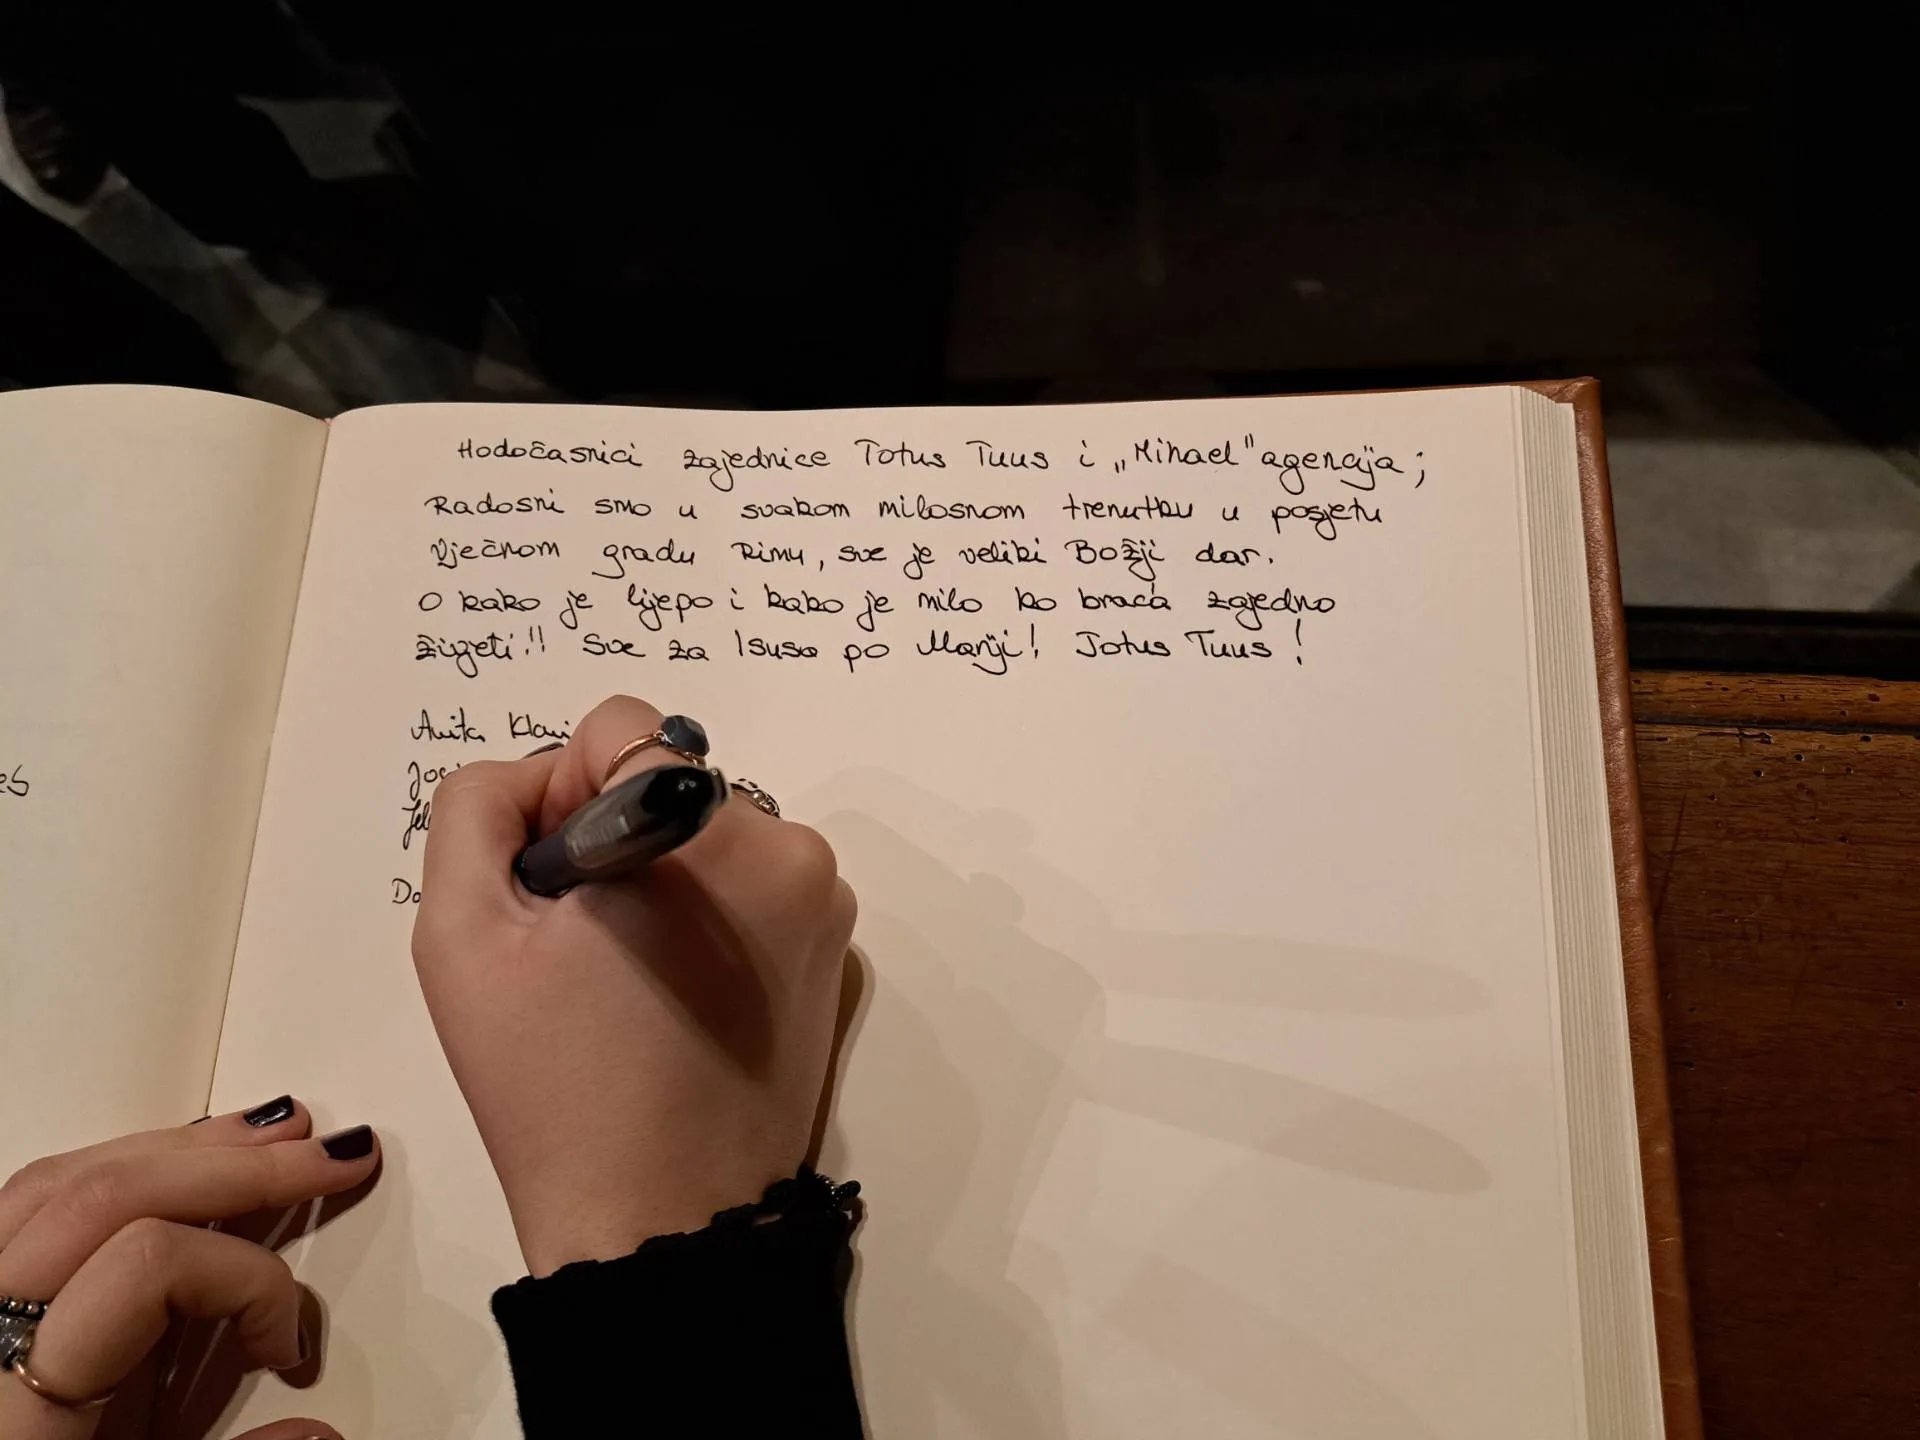 Hodočasnici zajednice Totus Tuus i „Mihael" agencija;
Radosni smo u svakom milosnom trenutku u posjetu
Vječnom gradu Rimu, sve je veliki Božji dar.
O kako je lijepo i kako je milo ko braća zajedno
živjeti!! Sve za Isusa po Mariji! Totus Tuus!
Anita